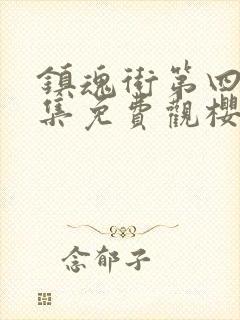 鎮魂街第四
集免費觀櫻
念郁子